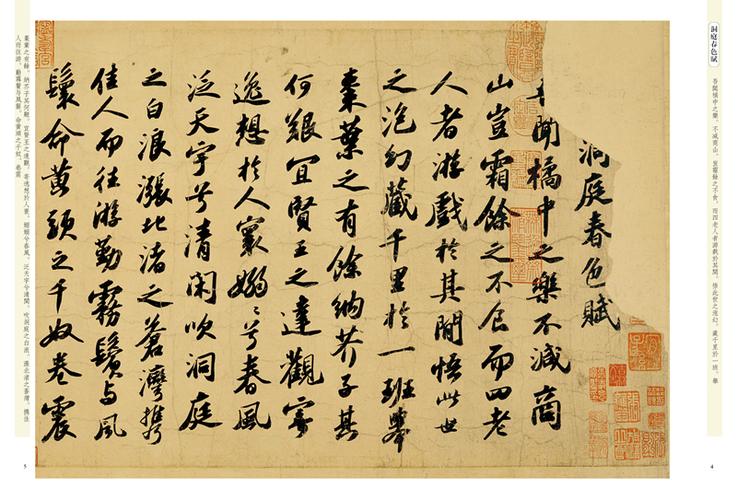 洞庭春色賦
吾聞橘中之樂，不減商山。豈霜餘之不食，而四老人者游戲於其間。悟此世之泡幻，藏千里於一班。舉
4
洞庭春色賦
吾聞橘中之樂不減商
山豈霜餘之不食而四老
人者游戲於其閒悟此世
之泡幻藏千里於一班舉
棗葉之有餘納芥子其
何艱宜賢王之達觀寄
逸想於人寰嫋〻兮春風
泛天宇兮清閑吹洞庭
之白浪漲北渚之蒼灣攜
佳人而往游勤霧鬢與風
鬟命黃頭之千奴卷震
棗葉之有餘，納芥子其何艱。宜賢王之達觀，寄逸想於人寰。嫋嫋兮春風，泛天宇兮清閑。吹洞庭之白浪，漲北渚之蒼灣。攜佳
人而往游，勤霧鬢與風鬟。命黃頭之千奴，卷震
5